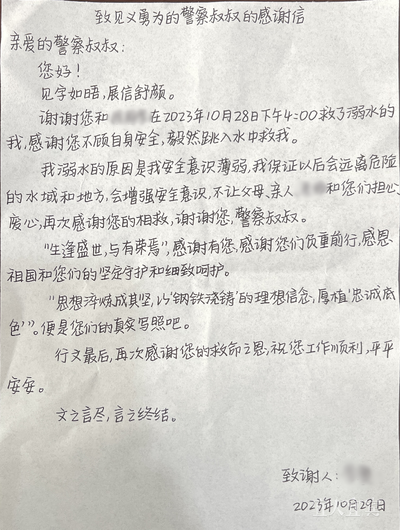 致见义勇为的警察叔叔的感谢信
亲爱的警察叔叔：
您好！
见字如晤，展信舒颜。
谢谢您和在2023年10月28日下午4:00救了溺水的
我，感谢您不顾自身安全，毅然跳入水中救我。
我溺水的原因是我安全意识薄弱，我保证以后会远离危险
的水域和地方，会增强安全意识，不让父母、亲人和您们担心
废心，再次感谢您的相救，谢谢您，警察叔叔。
“生逢盛世，与有荣焉”，感谢有您，感谢您们负重前行，感恩
祖国和您们的坚定守护和细致呵护。
“思想淬炼成其坚，以‘钢铁浇铸’的理想信念，厚植‘忠诚底
色’”。便是您们的真实写照吧。
行文最后，再次感谢您的救命之恩，祝您工作顺利，平平
安安。
文之言尽，言之终结。
致谢人：
2023年10月29日